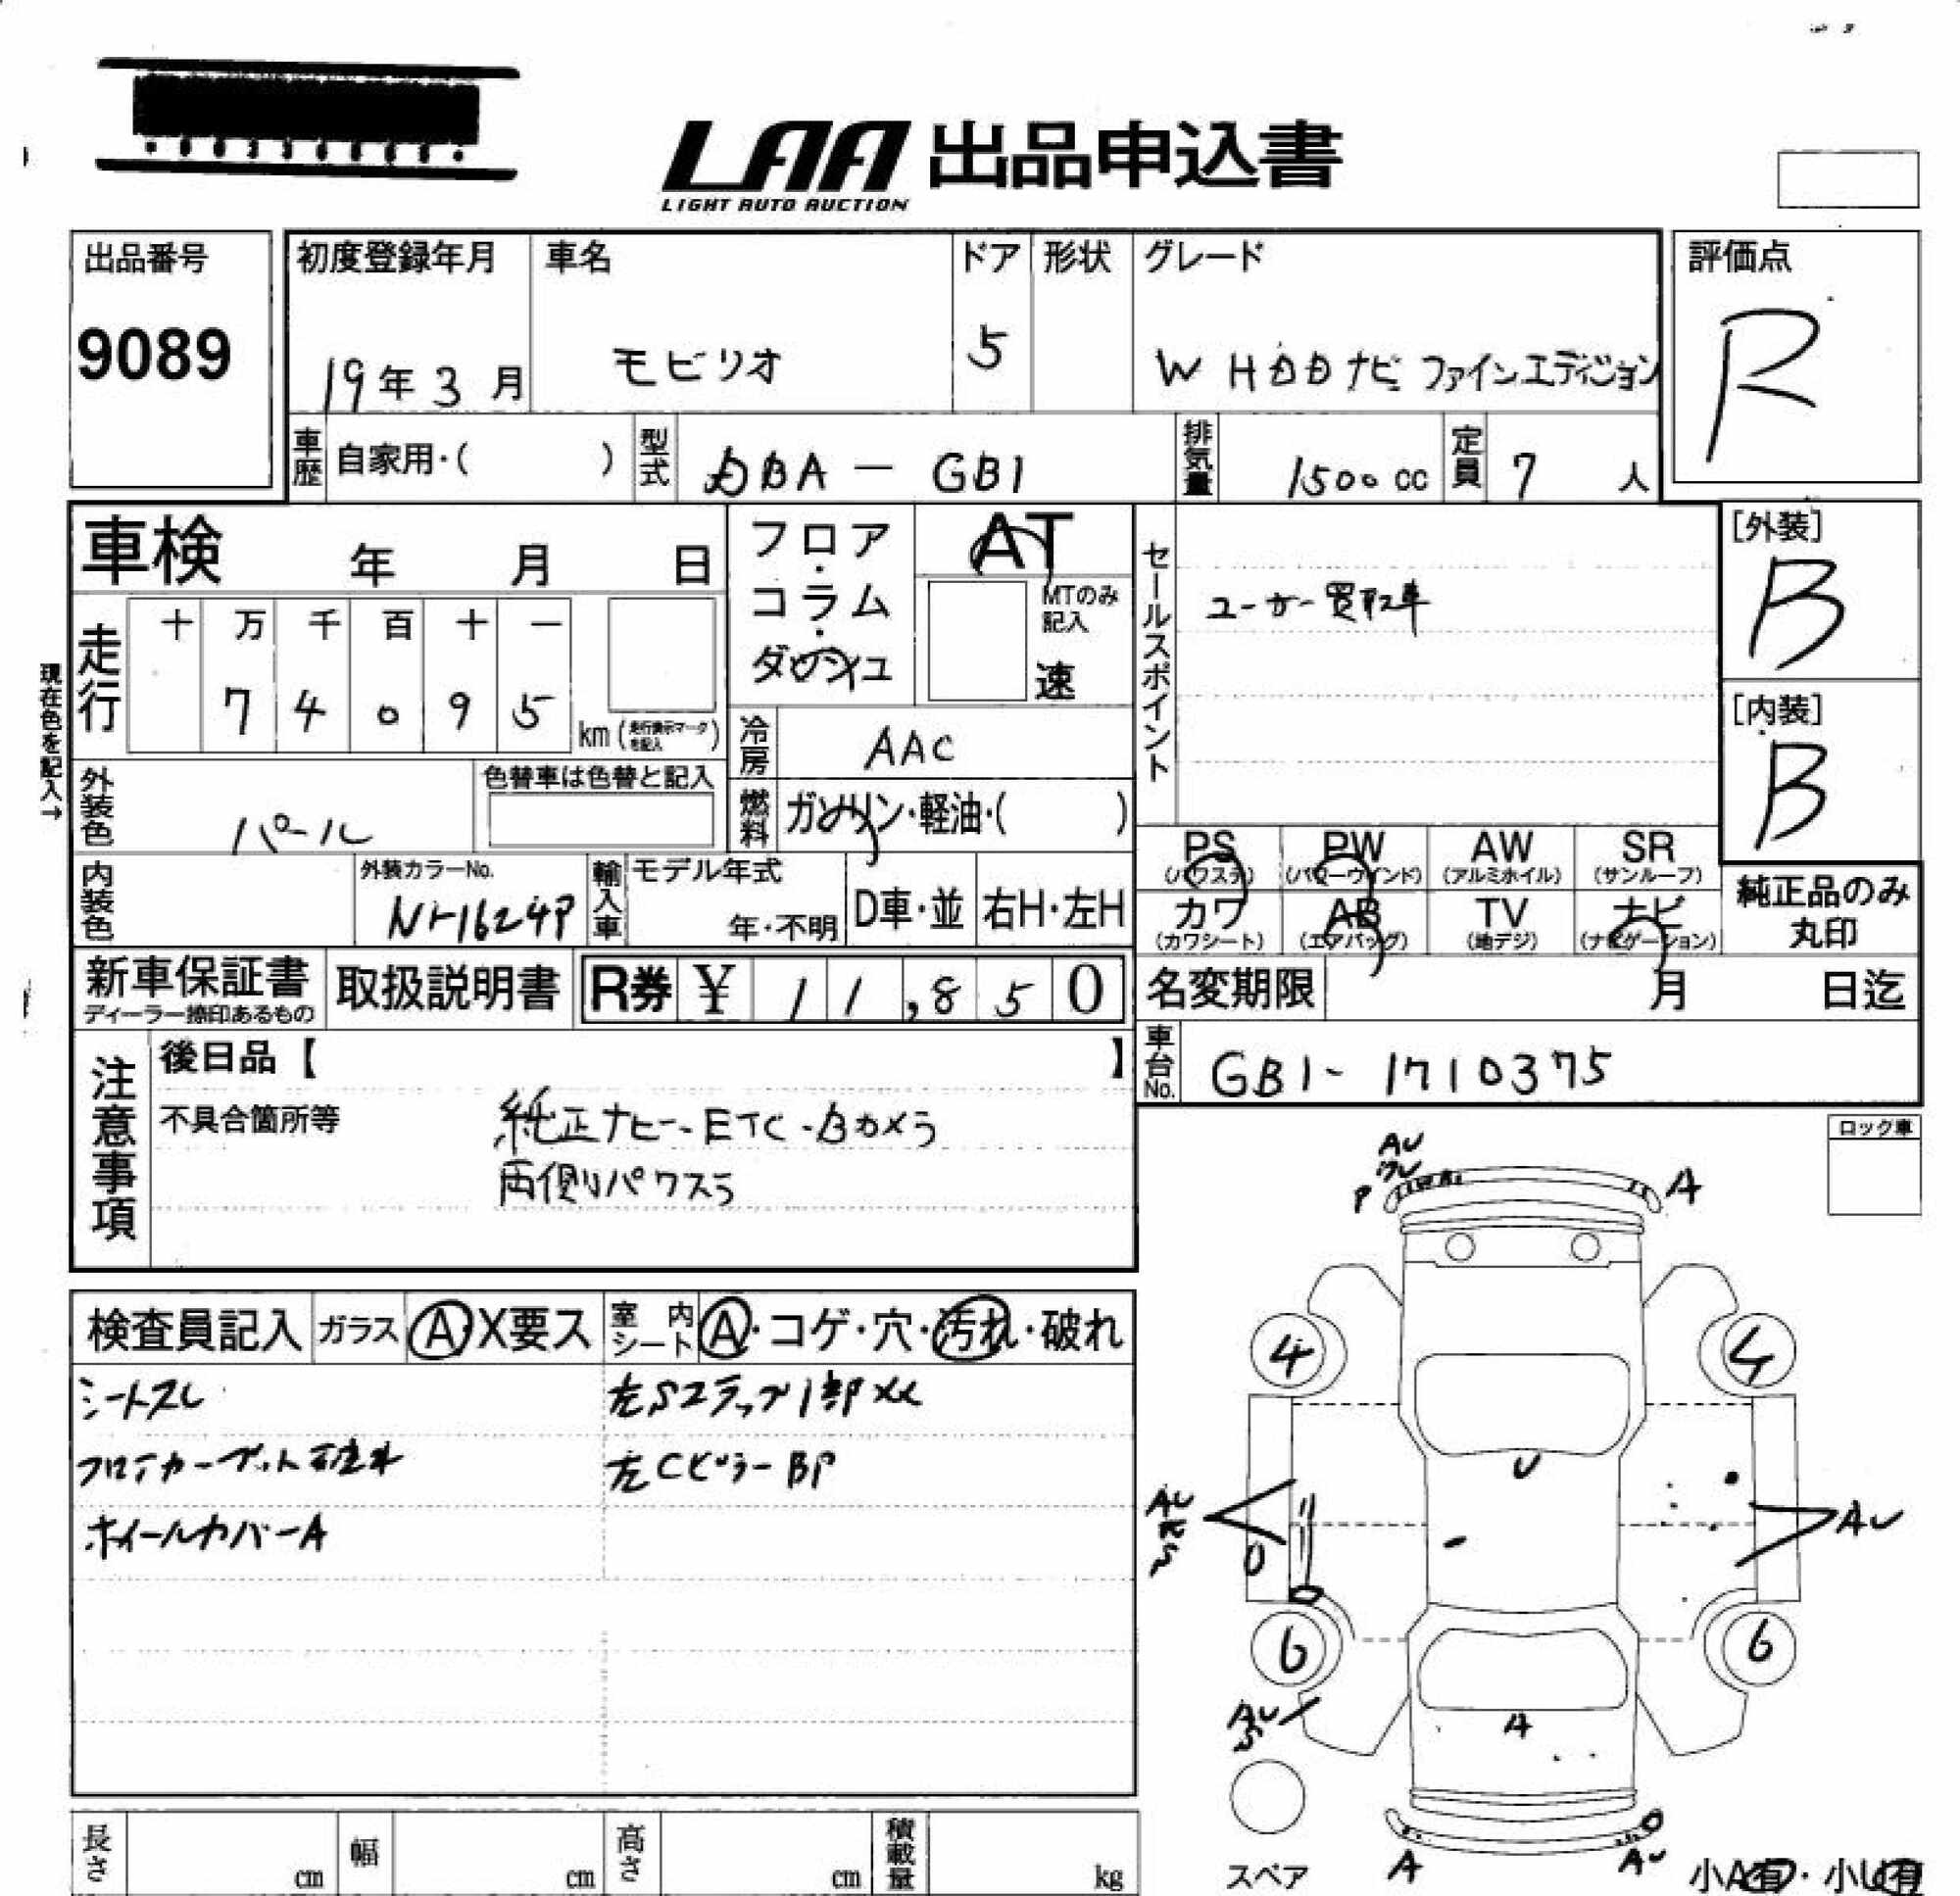 LAA 出品申込書
LIGHT AUTO AUCTION
出品番号
9089
初度登録年月
19年3月
車名
モビリオ
ドア
5
形状
グレード
W HDDナビ ファインエディション
評価点
R
車歴
自家用・( )
型式
DBA-GB1
排気量
1500cc
定員
7人
車検 年 月 日
フロア・コラム・ダッシュ
AT
MTのみ記入
速
セールスポイント
ユーザー買取車
[外装]
B
[内装]
B
現在色を記入→
走行
十 万 千 百 十 一
7 4 0 9 5
km(走行表示マークを記入)
冷房
AAC
外装色
パール
色替車は色替と記入
燃料
ガソリン・軽油・( )
PS (パワステ)
PW (パワーウインド)
AW (アルミホイル)
SR (サンルーフ)
内装色
外装カラーNo.
NH624P
輸入車
モデル年式
年・不明
D車・並
右H・左H
カワ (カワシート)
AB (エアバッグ)
TV (地デジ)
ナビ (ナビゲーション)
純正品のみ丸印
新車保証書
ディーラー捺印あるもの
取扱説明書
R券 ¥ 11,850
名変期限 月 日迄
車台No.
GB1-1710375
注意事項
後日品【 】
不具合箇所等
純正ナビ-ETC-Bカメラ
両側パワスラ
ロック車
検査員記入
ガラス A・X要ス
室内シート A・コゲ・穴・汚れ・破れ
シートスレ
左Sステップ1部メレ
フロアカーペット
左Cピラー BP
ホイールカバーA
AU
P
A
4
4
U
AU
AU
6
6
AU
S
A
A
AU
スペア
小A有・小U有
長さ cm
幅 cm
高さ cm
積載量 kg